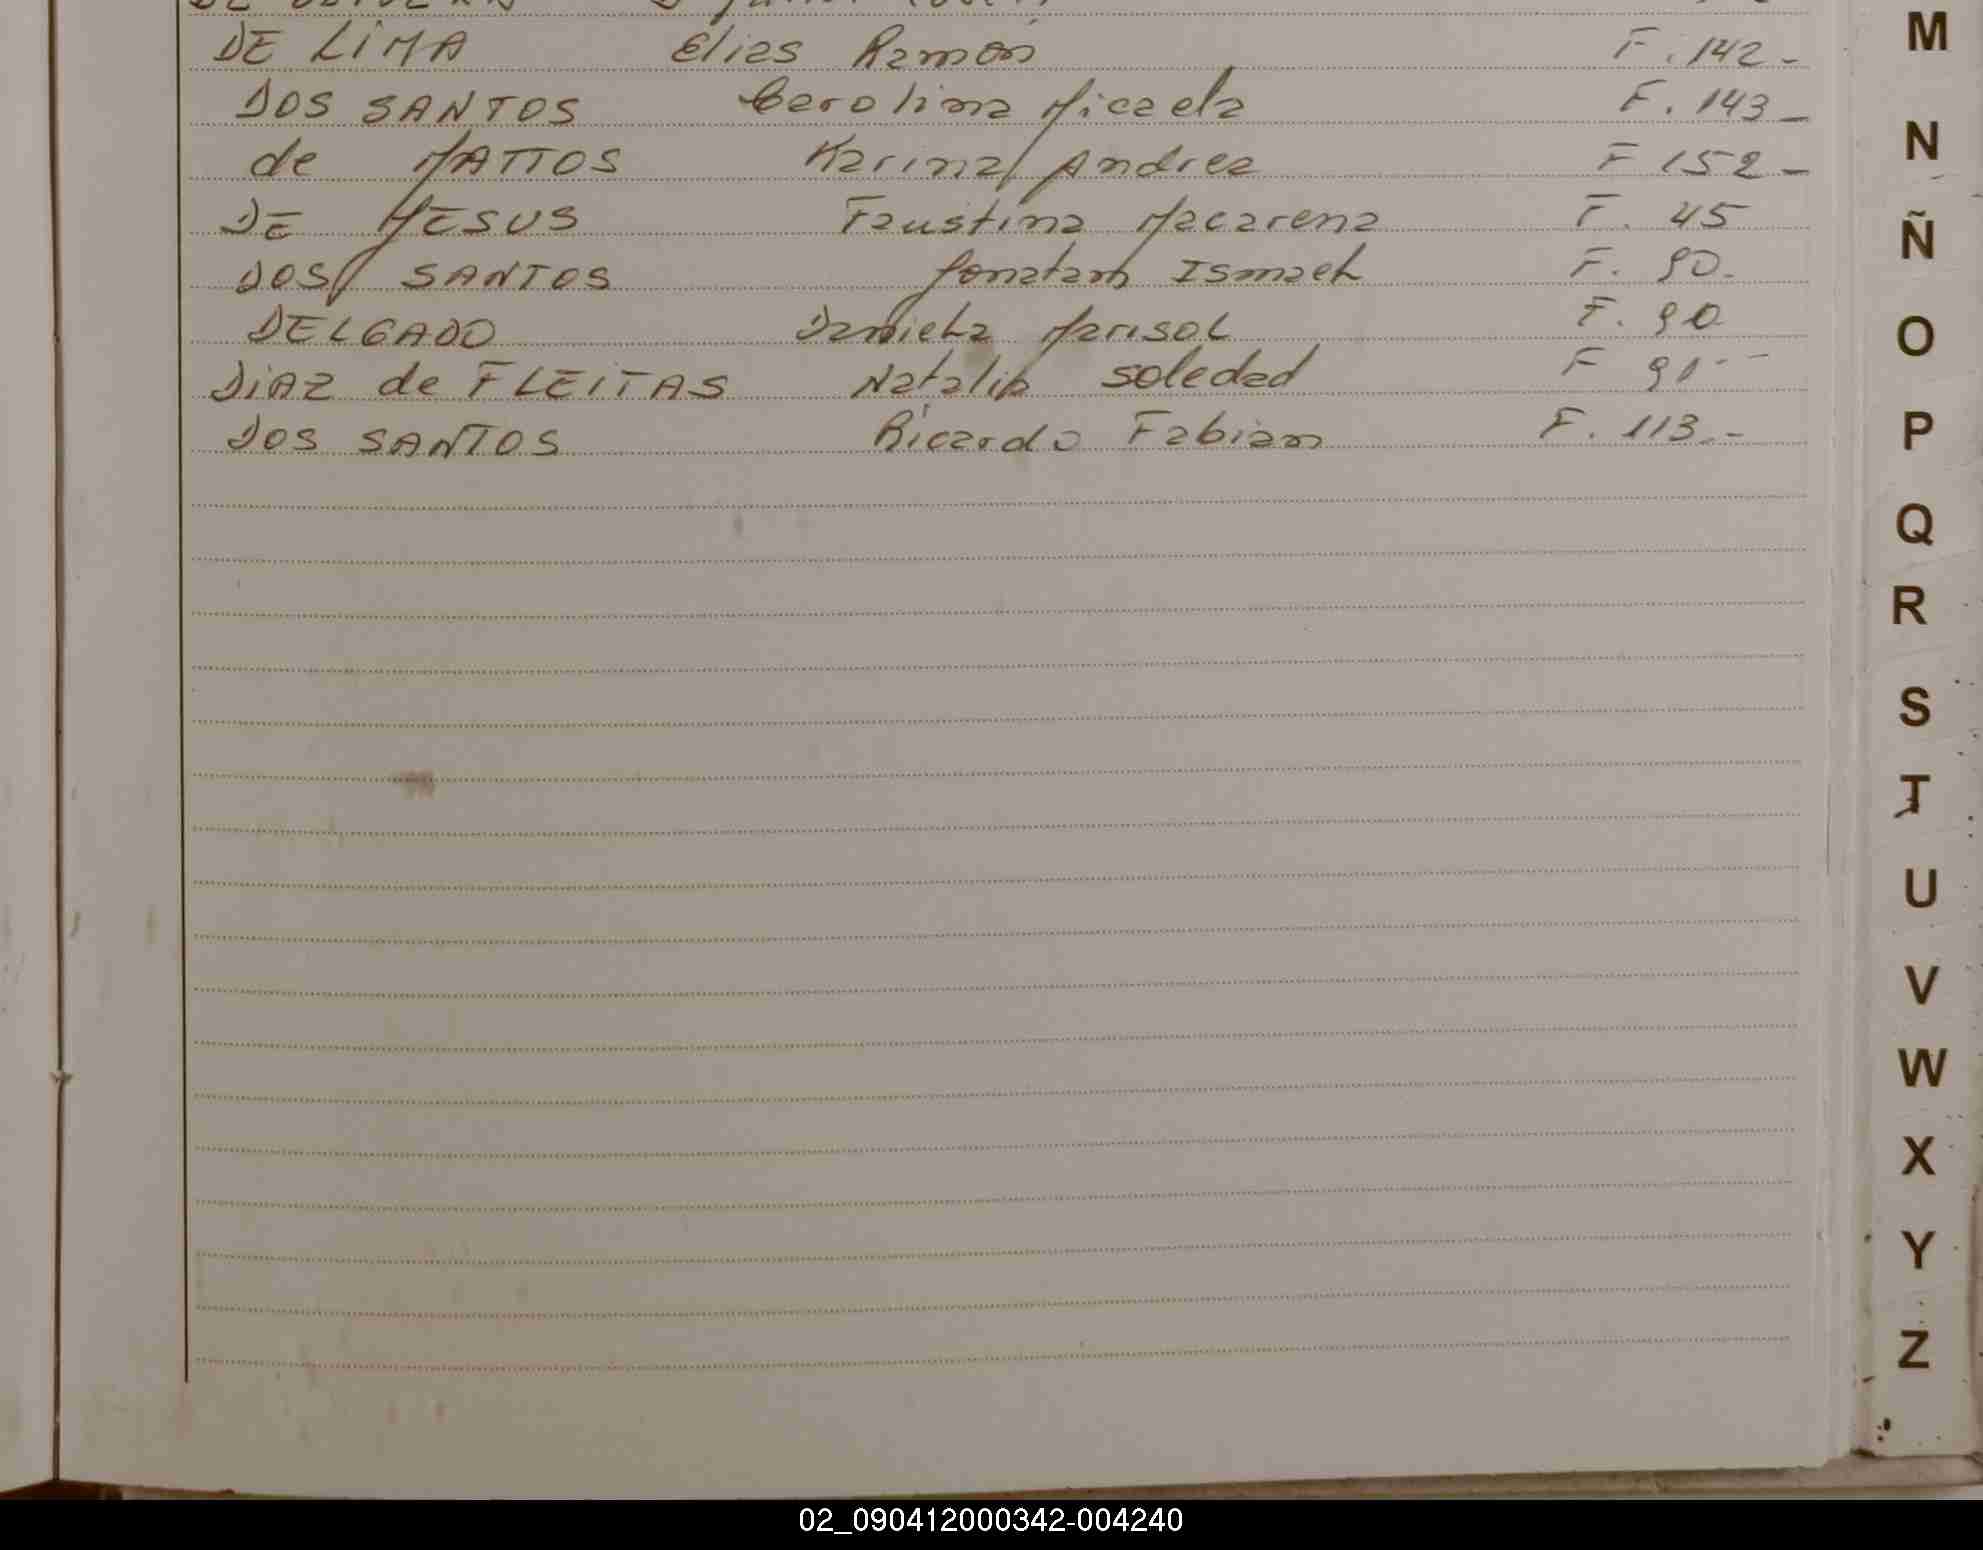 DE LIMA Elias Ramón F. 142-
DOS SANTOS Carolina Micaela F. 143-
de MATTOS Karina Andrea F 152-
DE JESUS Faustina Macarena F. 45
DOS SANTOS Jonatan Ismael F. 90.
DELGADO Daniela Marisol F. 90
DIAZ de FLEITAS Natalia Soledad F 91--
DOS SANTOS Ricardo Fabian F. 113.-
M
N
Ñ
O
P
Q
R
S
T
U
V
W
X
Y
Z
02_090412000342-004240